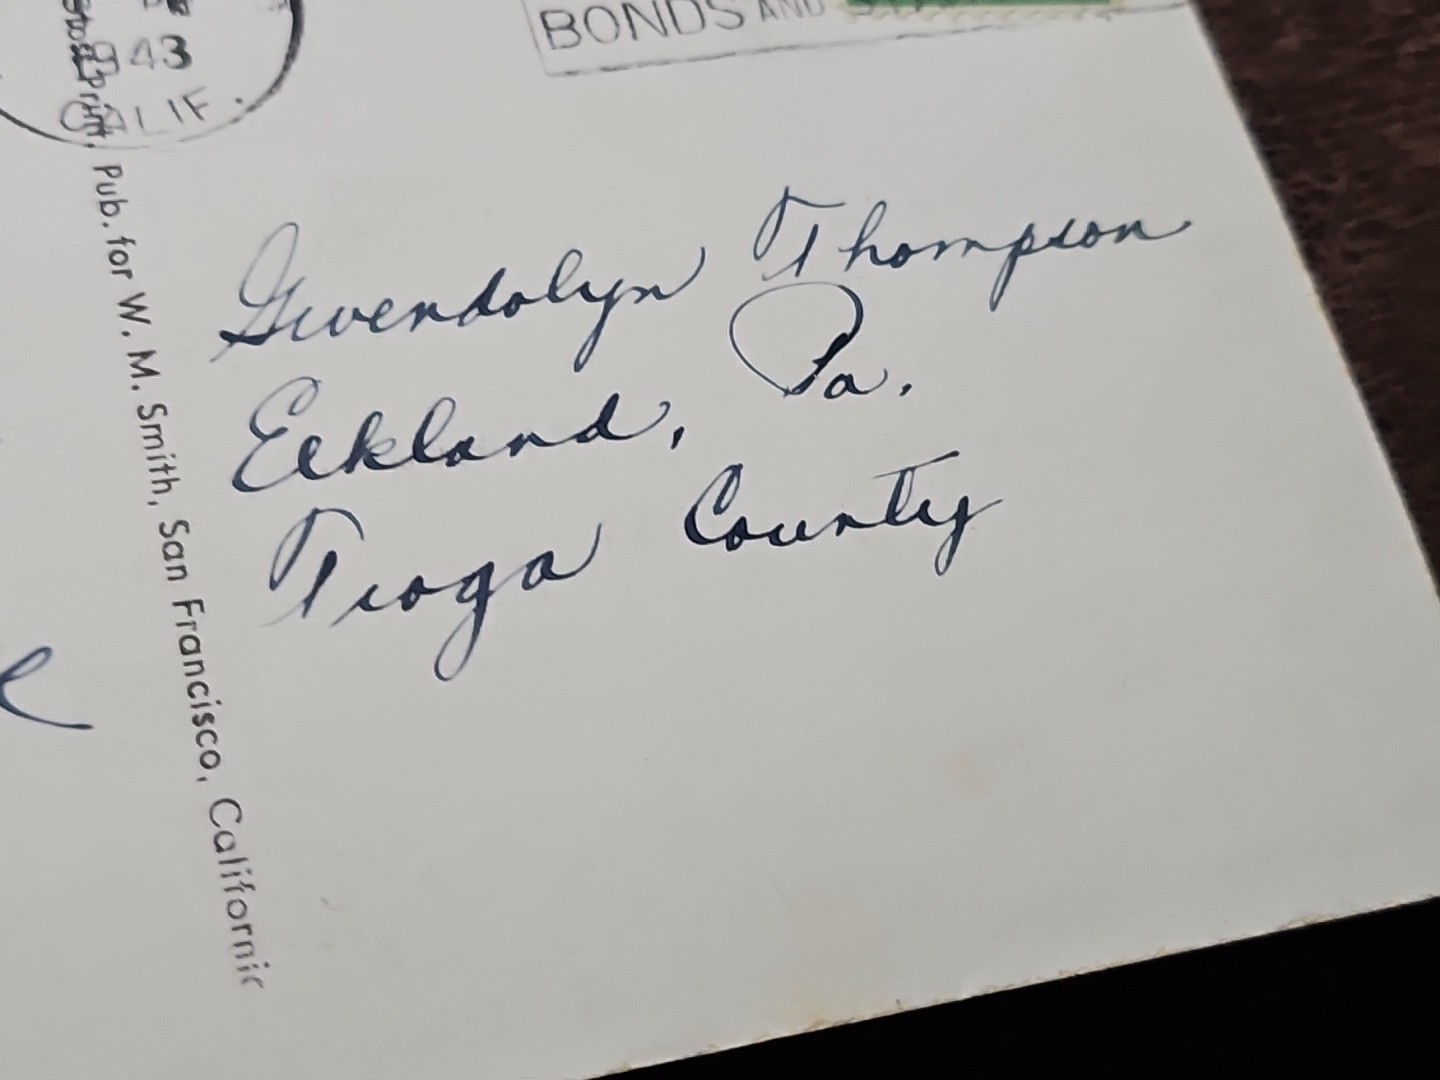 43
CALIF.
BONDS AND
Pub. for W. M. Smith, San Francisco, California
Gwendolyn Thompson
Eckland, Pa.
Tioga County